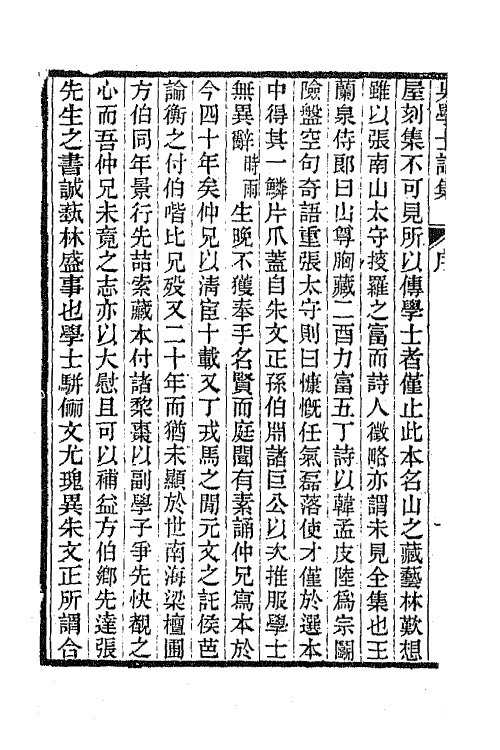 吳學士詩集　序
屋刻集不可見所以傳學士者僅止此本名山之藏藝林歎想
雖以張南山太守搜羅之富而詩人徵略亦謂未見全集也王
蘭泉侍郎曰山尊胸藏二酉力富五丁詩以韓孟皮陸爲宗鬬
險盤空句奇語重張太守則曰慷慨任氣磊落使才僅於選本
中得其一鱗片爪蓋自朱文正孫伯淵諸巨公以次推服學士
無異辭時雨生晚不獲奉手名賢而庭聞有素誦仲兄寫本於
今四十年矣仲兄以清宦十載又丁戎馬之閒元文之託侯芭
論衡之付伯喈比兄歿又二十年而猶未顯於世南海梁檀圃
方伯同年景行先喆索藏本付諸黎棗以副學子爭先快覩之
心而吾仲兄未竟之志亦以大慰且可以補益方伯鄉先達張
先生之書誠蓺林盛事也學士駢儷文尤瑰異朱文正所謂合